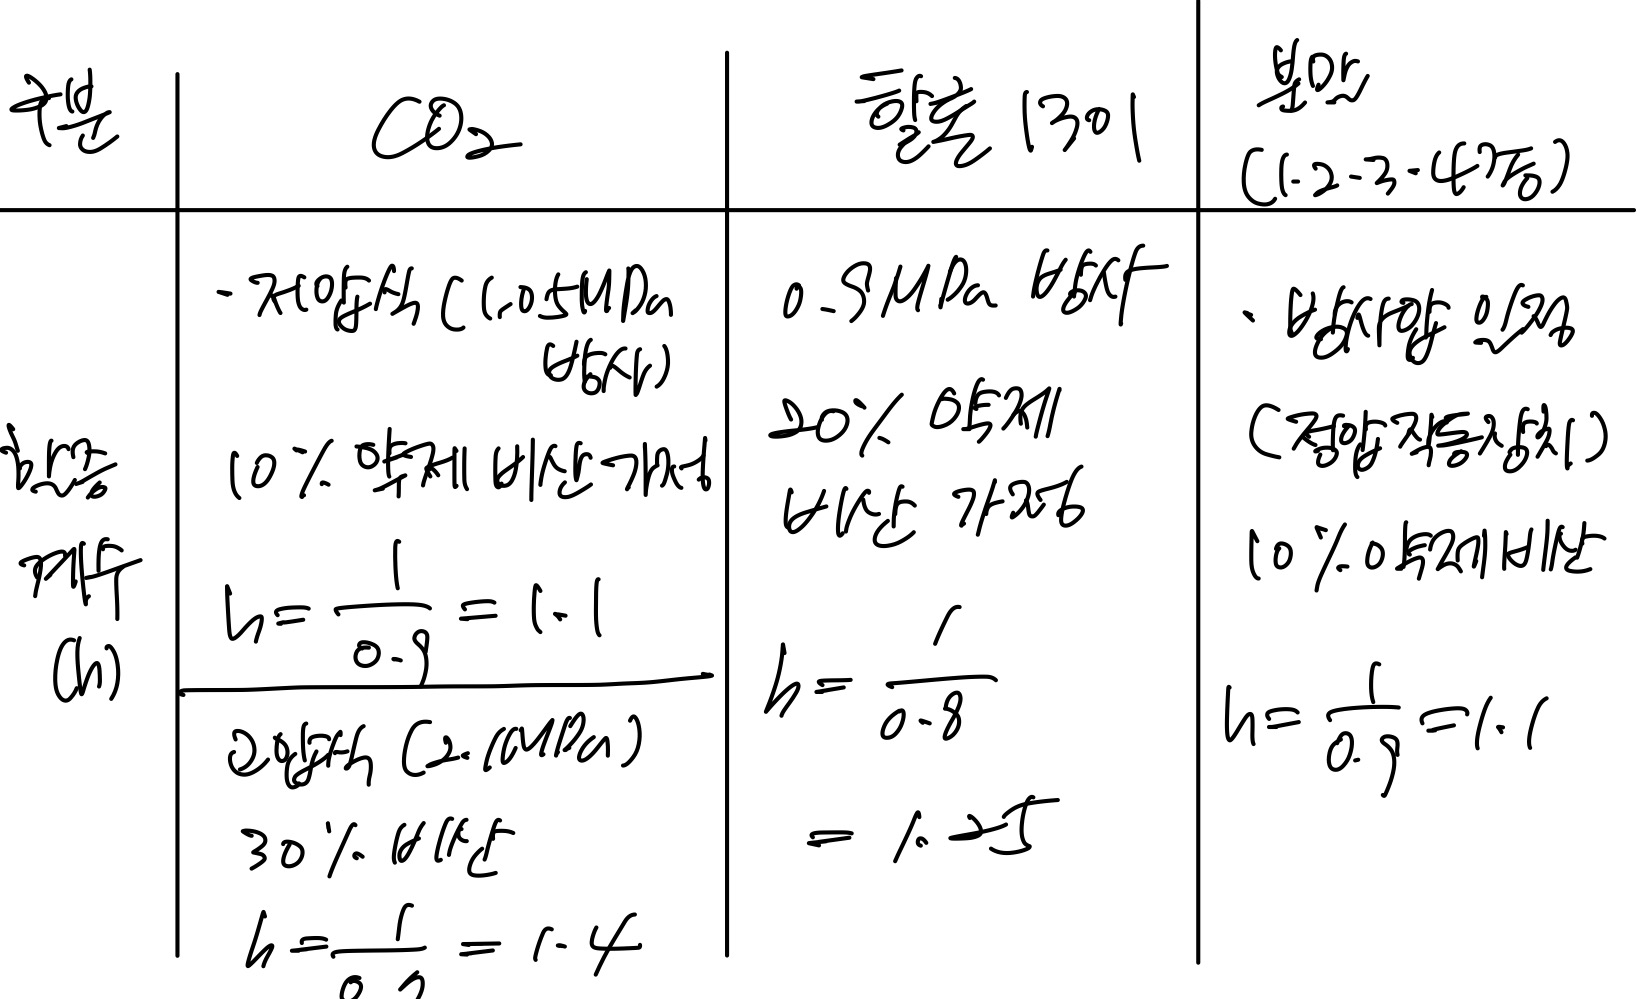 구분
CO₂
할론 1301
분말
(1·2·3·4종)
할증
계수
(h)
- 저압식 (1.05MPa
방사)
10% 약제 비산가정
h = 1/0.9 = 1.1
고압식 (2.1MPa)
30% 비산
h = 1/0.7 = 1.4
0.9MPa 방사
20% 약제
비산 가정
h = 1/0.8
= 1.25
· 방사압 일정
(정압작동장치)
10% 약제비산
h = 1/0.9 = 1.1